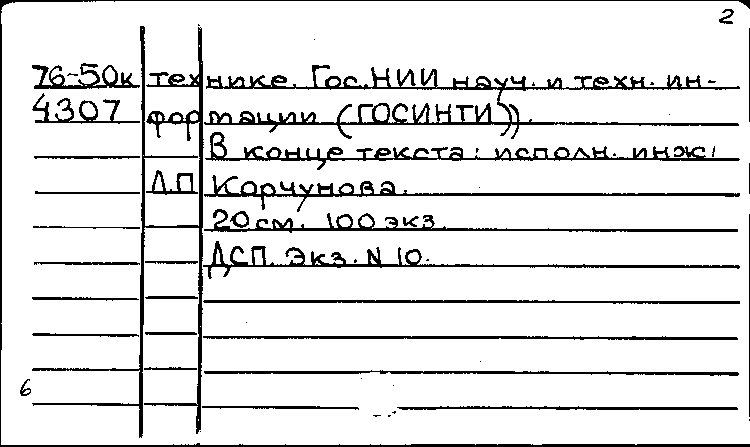 2
76-50к технике. Гос. НИИ науч. и техн. ин-
4307 формации (ГОСИНТИ)).
В конце текста: исполн. инж:
Л.П Корчунова.
20 см. 100 экз.
ДСП. Экз. N 10.
6